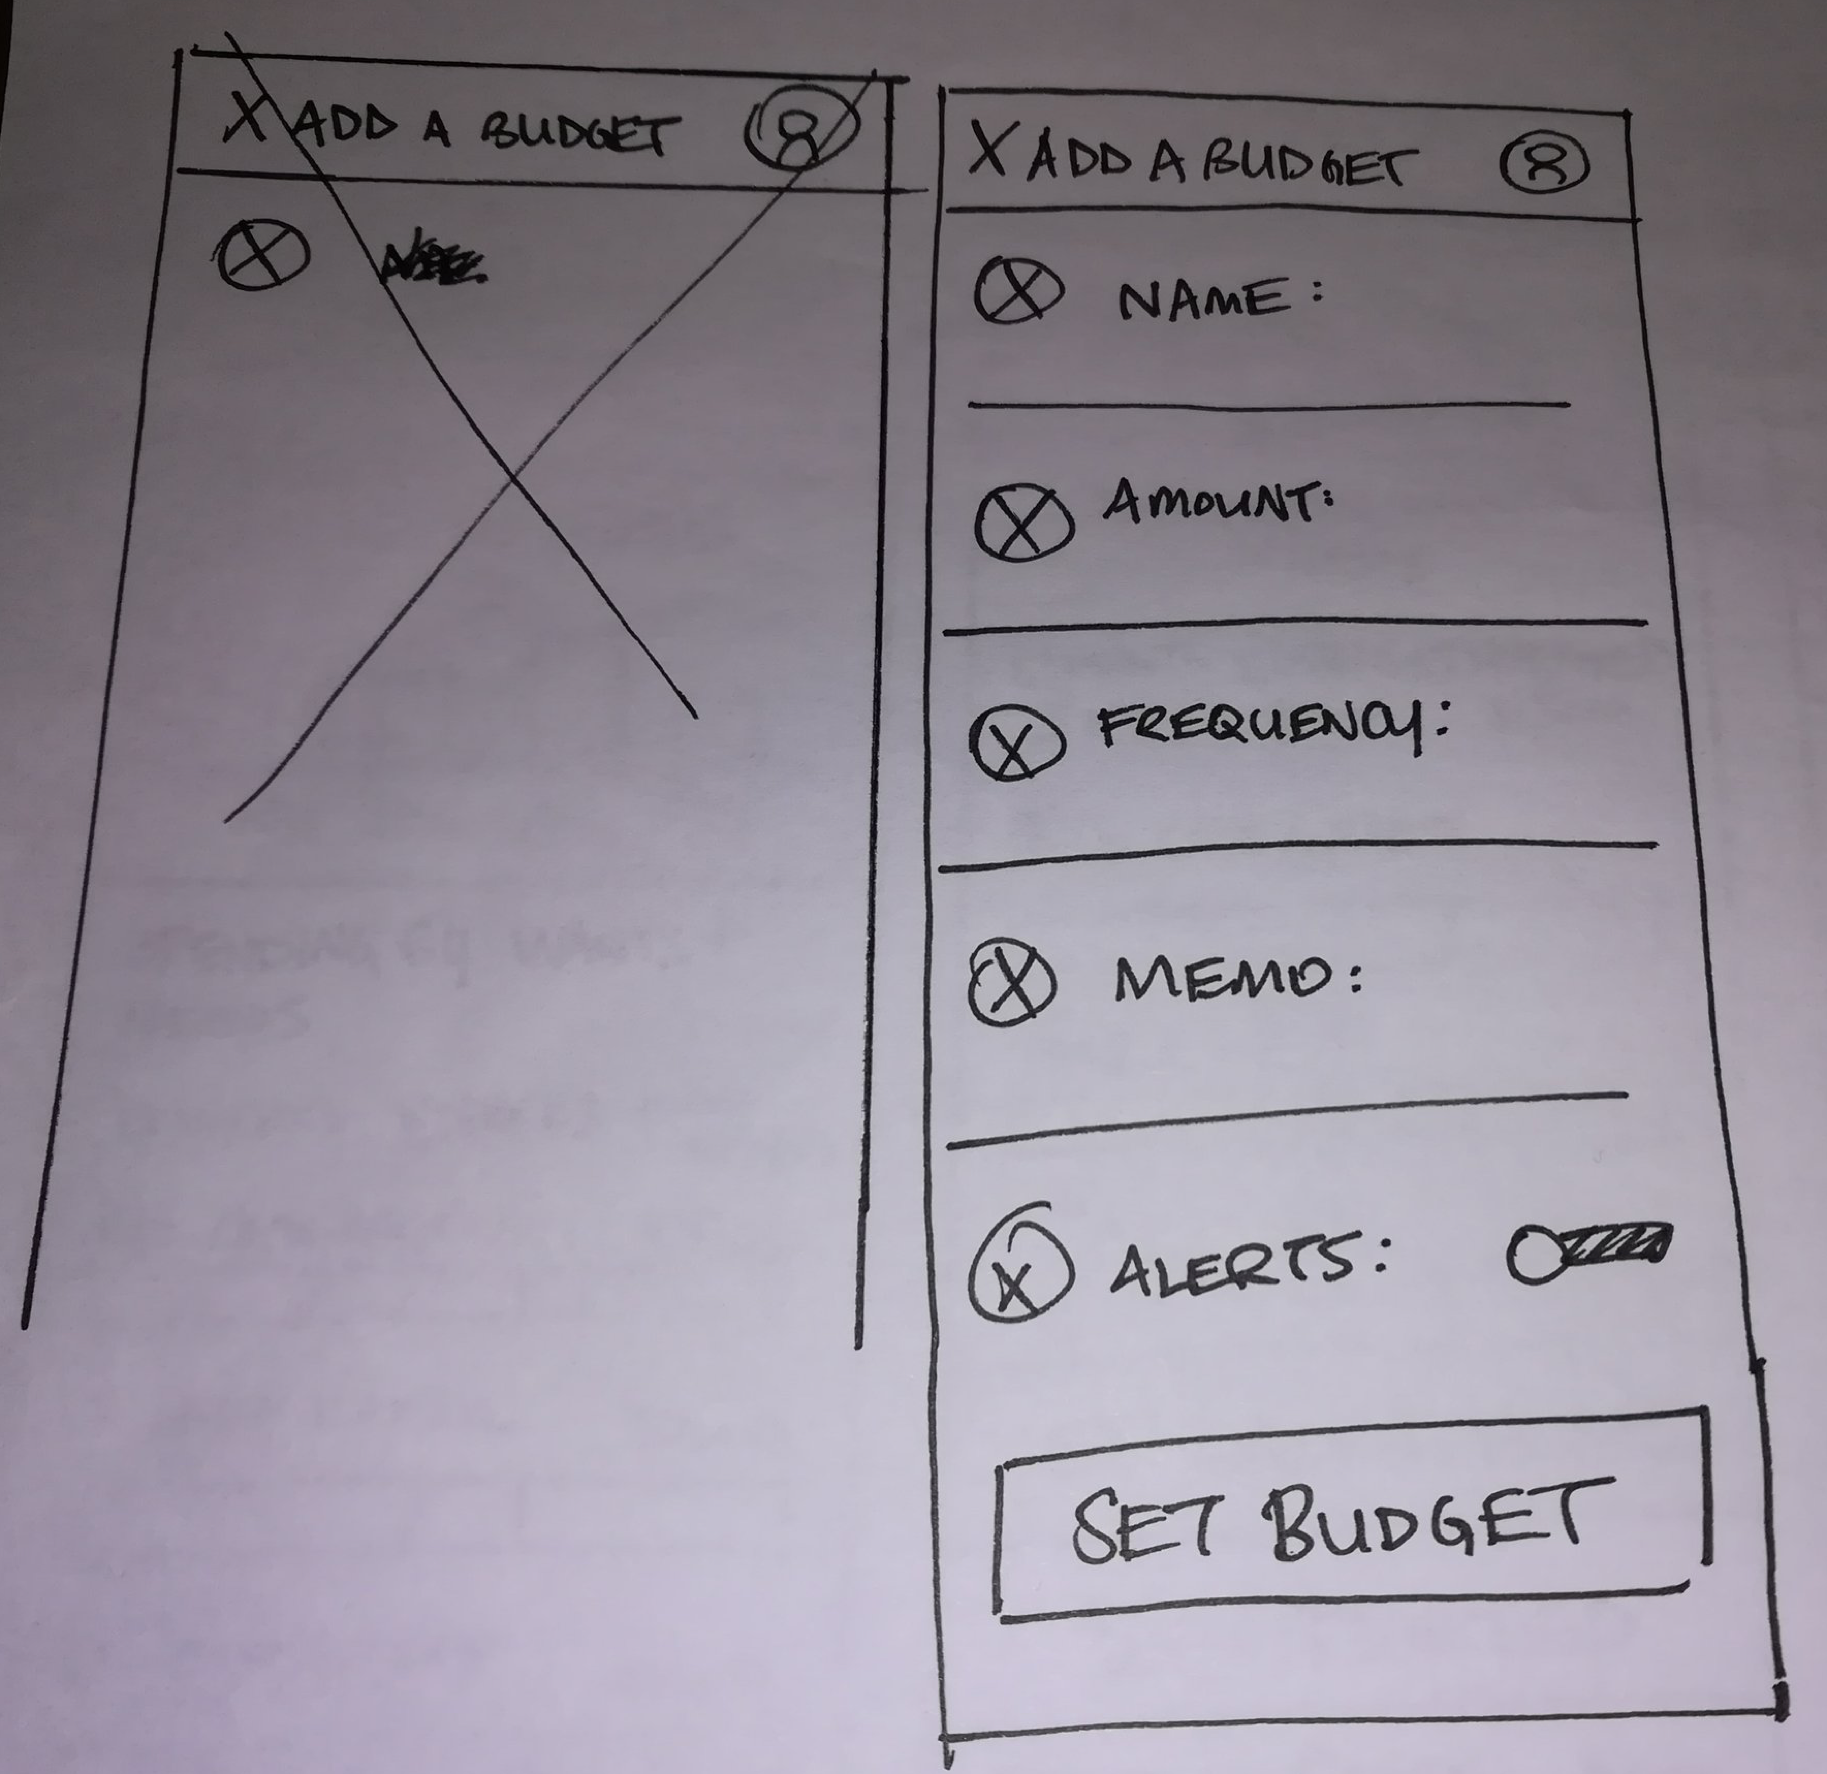 X ADD A BUDGET
X ADD A BUDGET
NAME:
AMOUNT:
FREQUENCY:
MEMO:
ALERTS:
SET BUDGET